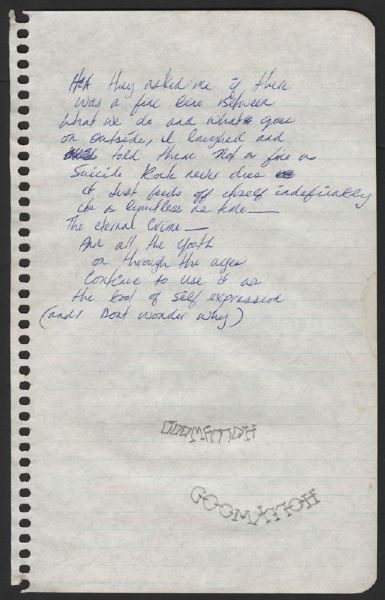 they asked me if there
was a fine line between
what we do and what goes
on outside, I laughed and
told them not as fine as
Suicide Rock never dies
it Just feeds off itself indefinitely
its a limitless as time —
The eternal Crime —
And all the youth
on through the ages
Continue to use it as
the tool of self expression
(and I Dont wonder why)